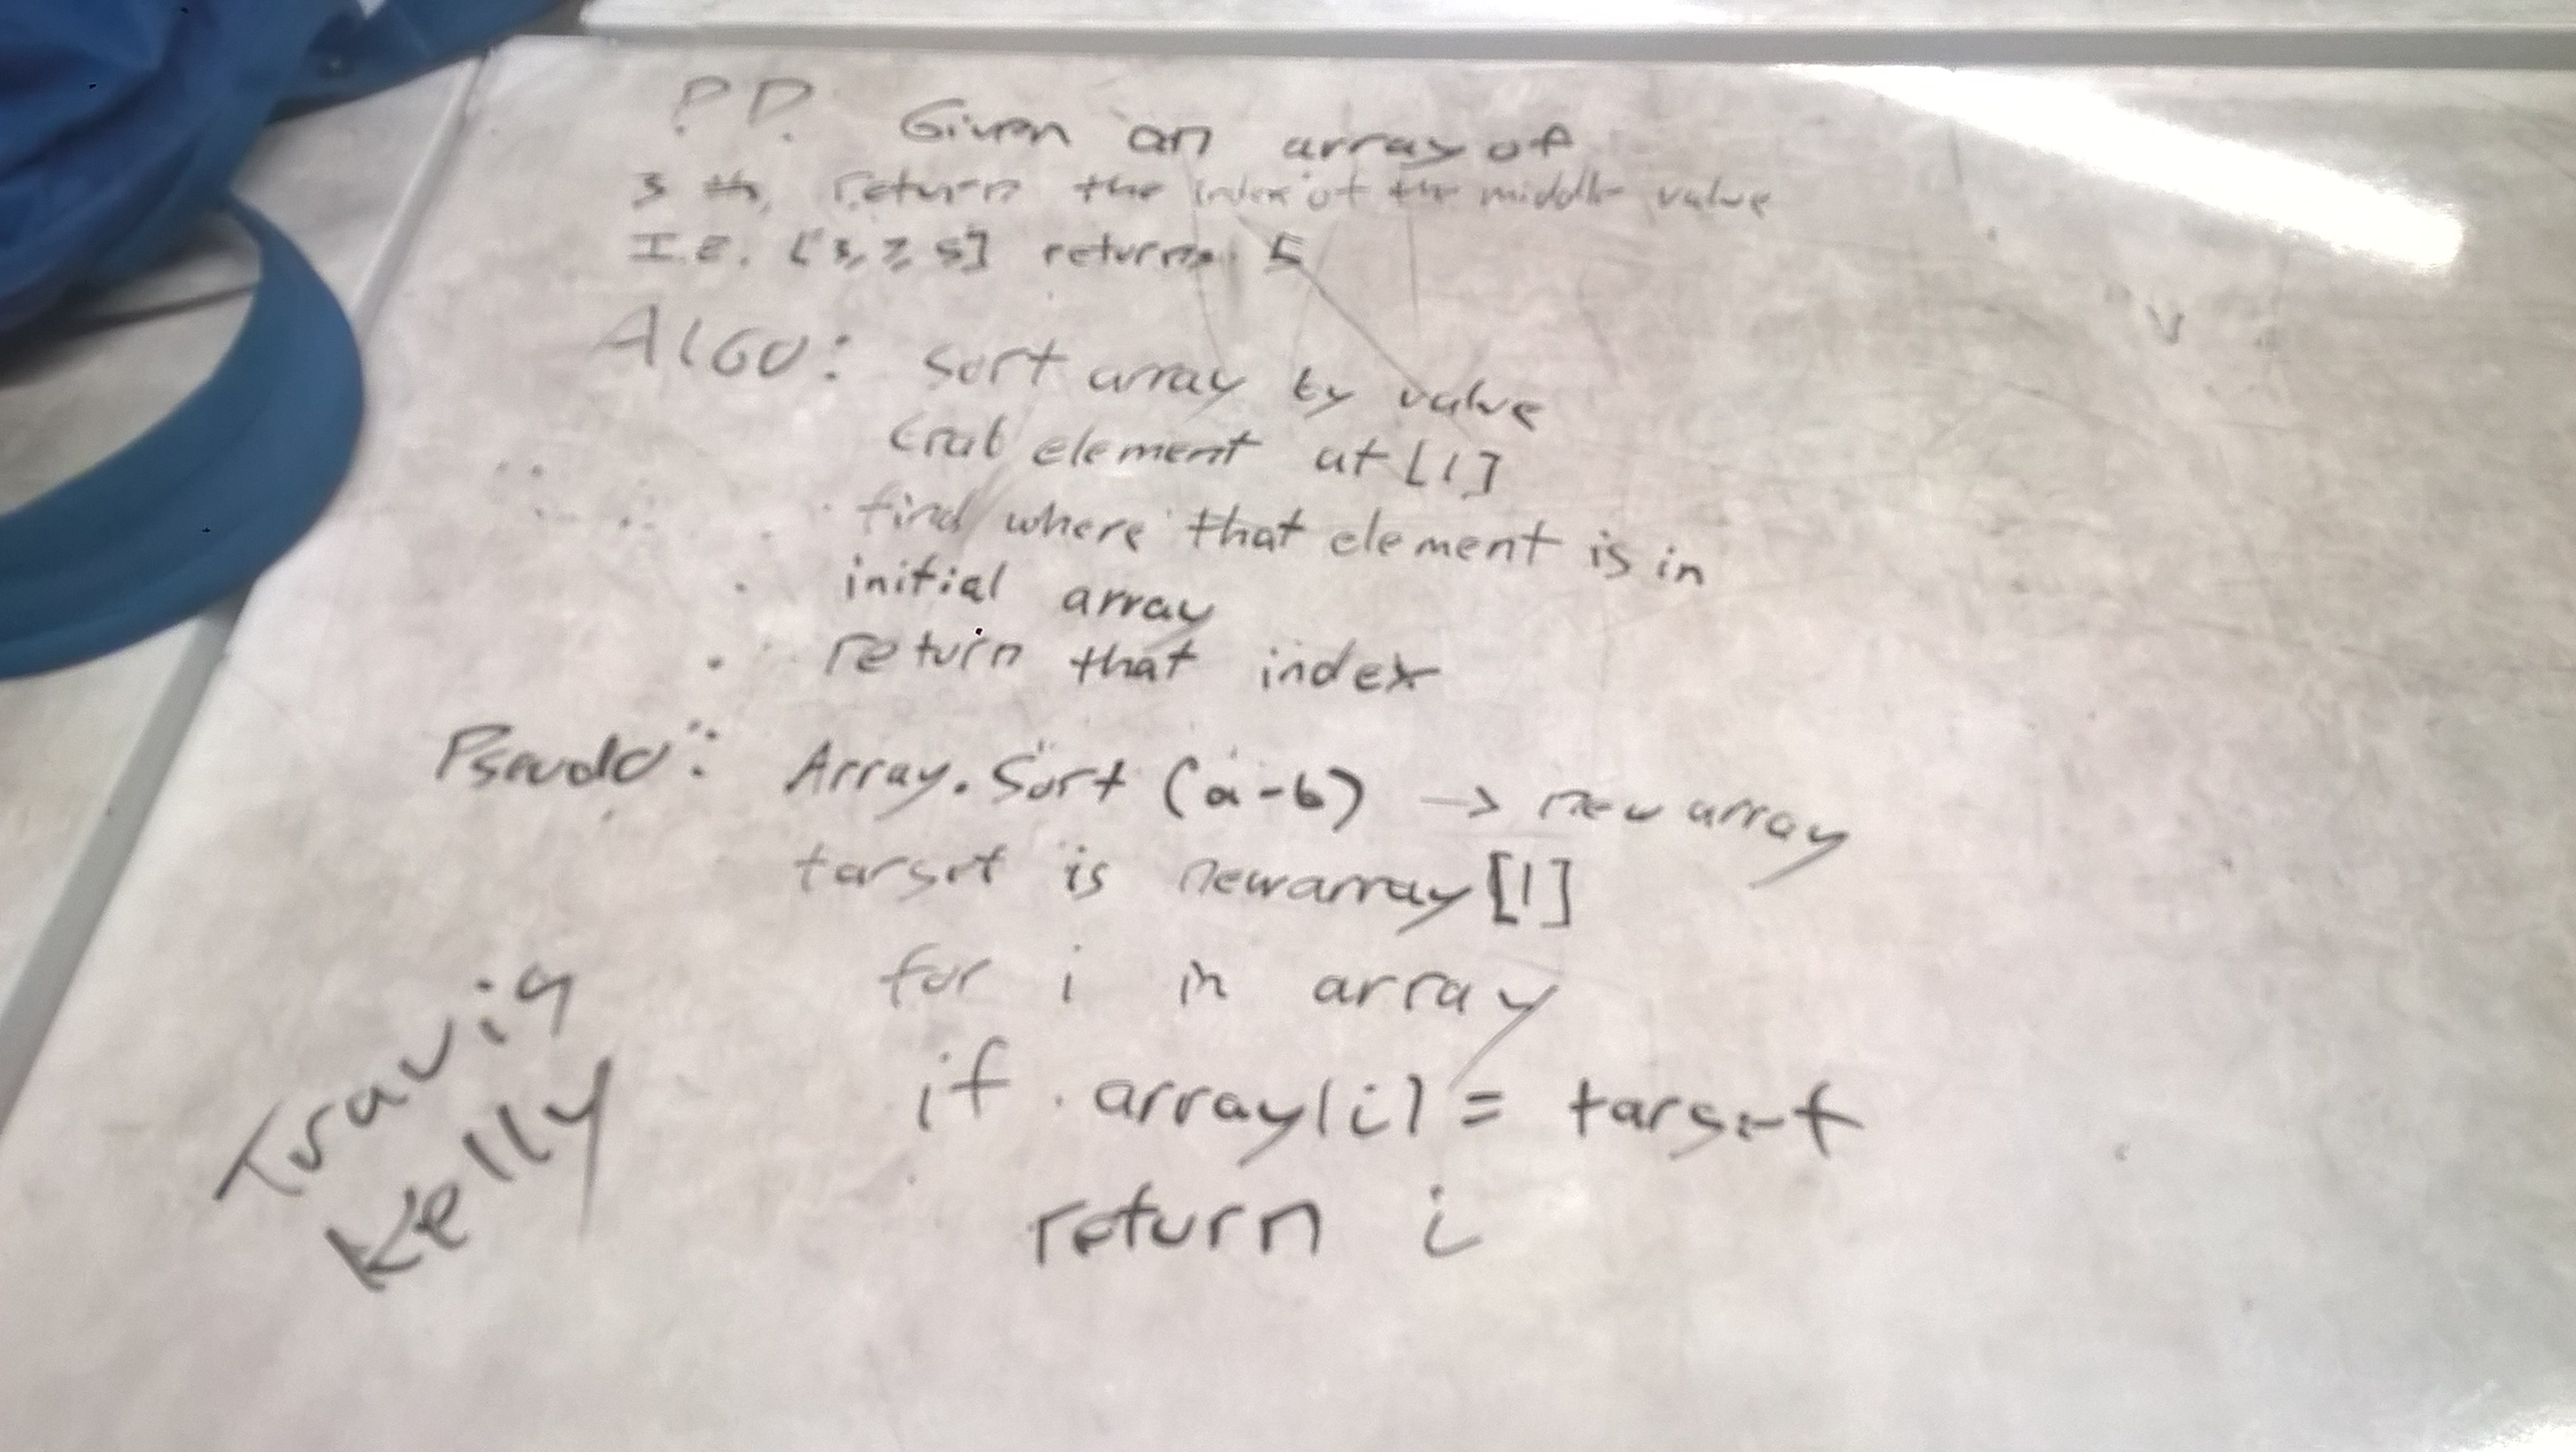 PD. Given an array of
3 #s, return the index of the middle value
I.E. [3, 2 5] returns
AlGO: Sort array by value
Grab element at [1]
find where that element is in
initial array
return that index
Pseudo: Array.Sort (a-b) → new array
target is newarray[1]
for i in array
if array[i] = target
return i
Travis
Kelly